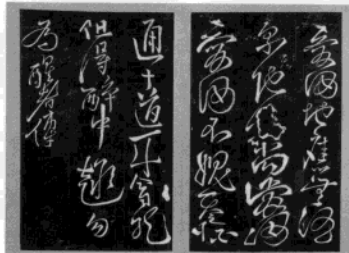 愛酒地應無酒
泉地既愛酒
愛酒不愧天
通大道一斗合
但得醉中趣勿
為醒者傳